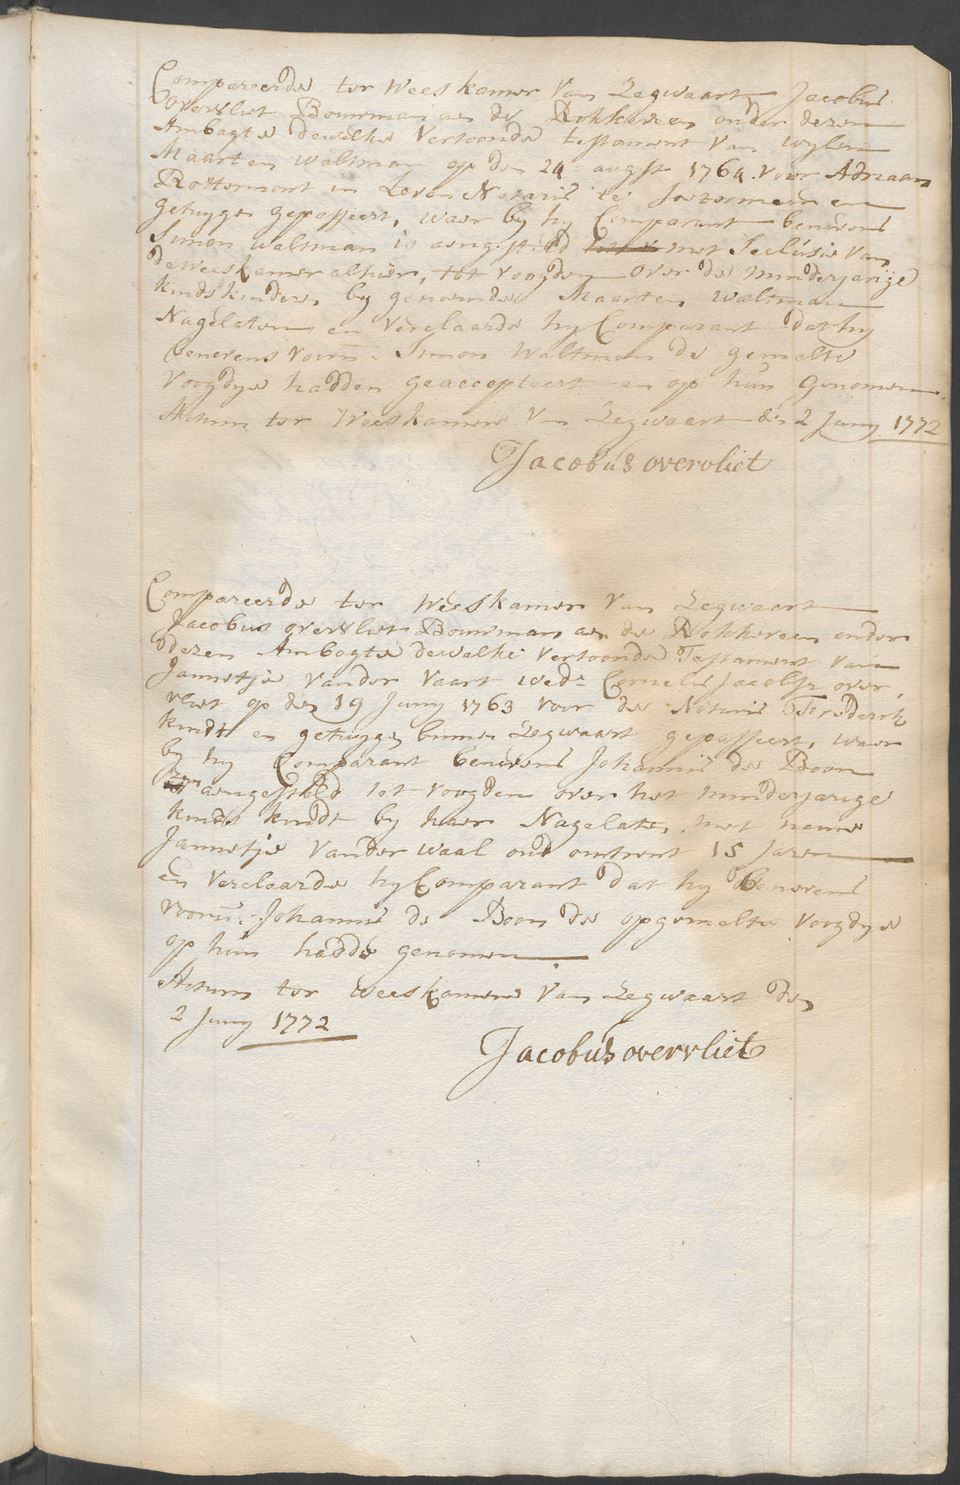 Compareerde ter Weeskamer Van Zegwaart Jacobus
overvliet Bouwman aen de Rokkeveen onder dezen
Ambagte dewelke Vertoonde testament Van wylen
Maarten Waltman op den 24 augst 1764 voor Adriaan
Rottermont in Leven Notaris te Soetermeer en
getuyge gepasseert, waer by hy Comparant benevens
Simon Waltman is aengesteld met Seclusie Van
de weeskamer alhier, tot voogden over de minderjarige
kindskinderen by genoemde Maarten Waltman
Nagelaten en Verclaarde hy Comparant dat hy
benevens voorn: Simon Waltman de gemelte
Voogdye hadden geaccepteert en op hun genomen
Actum ter Weeskamere Van Zegwaart den 2 Juny 1772
Jacobus overvliet
Compareerde ter Weeskamer Van Zegwaart
Jacobus overvliet Bouwman aen de Rokkeveen onder
dezen Ambagte dewelke Vertoonde Testament Van
Jannetje Vander Vaart wede Cornelis Jacobsz over,
vliet op den 19 Juny 1763 Voor de Notaris Frederik
kindt en getuyge binnen Zegwaart gepasseert, waer
by hy Comparant benevens Johannis de Boon
zyn aengesteld tot voogden over het minderjarige
kinds kindt by haer Nagelate, met name
Jannetje Vander Waal oud omtrent 15 Jaren
en Verclaarde hy Comparant dat hy benevens
voorn: Johannis de Boon de opgemelte voogdye
op hun hadde genomen
Actum ter weeskamere Van Zegwaart den
2 Juny 1772
Jacobus overvliet